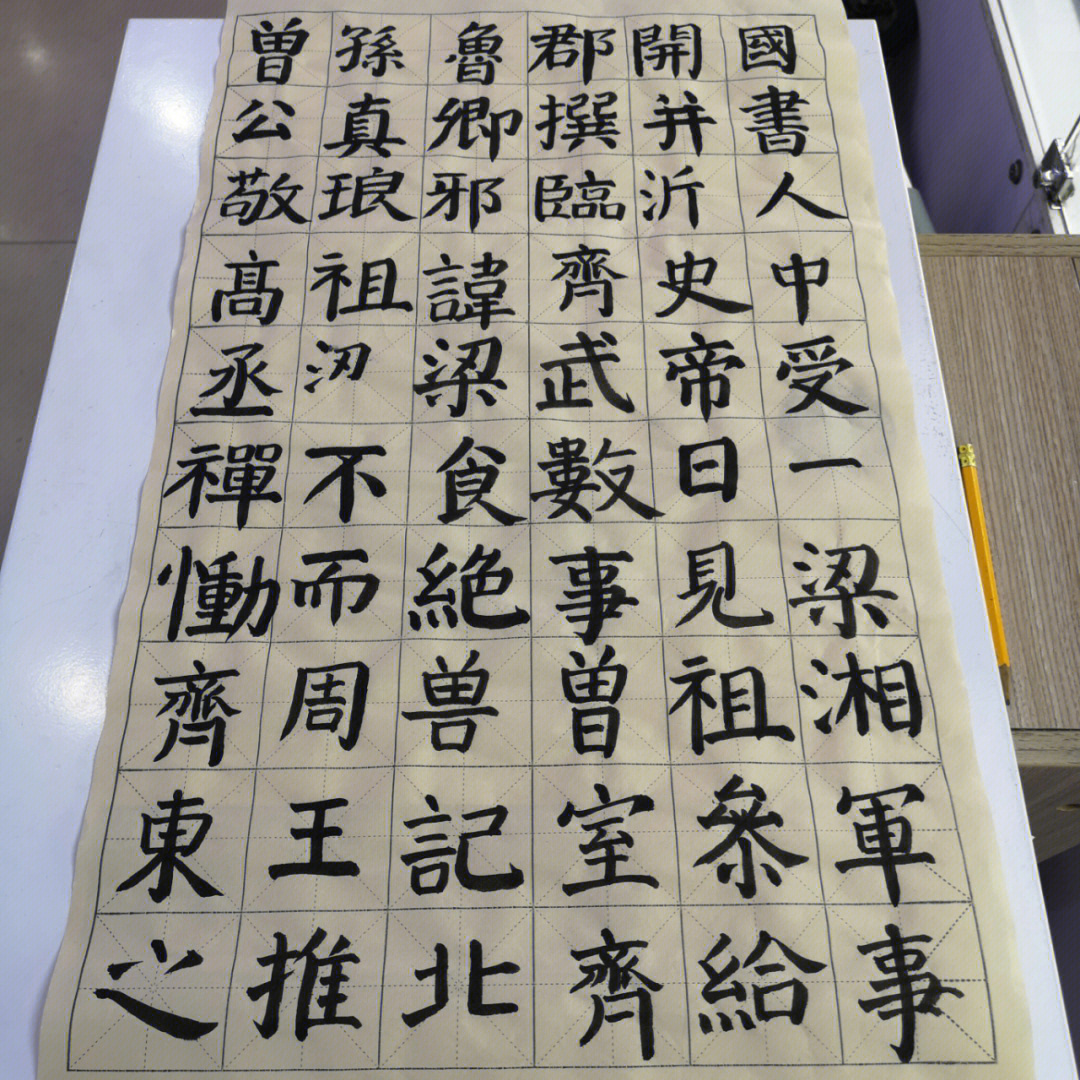 曾孫魯郡開國
公真卿撰并書
敬琅邪臨沂人
髙祖諱齊史中
丞梁武帝受
禪不食數日一
慟而絶事見梁
齊周兽曾祖湘
東王記室叅軍
之推北齊給事